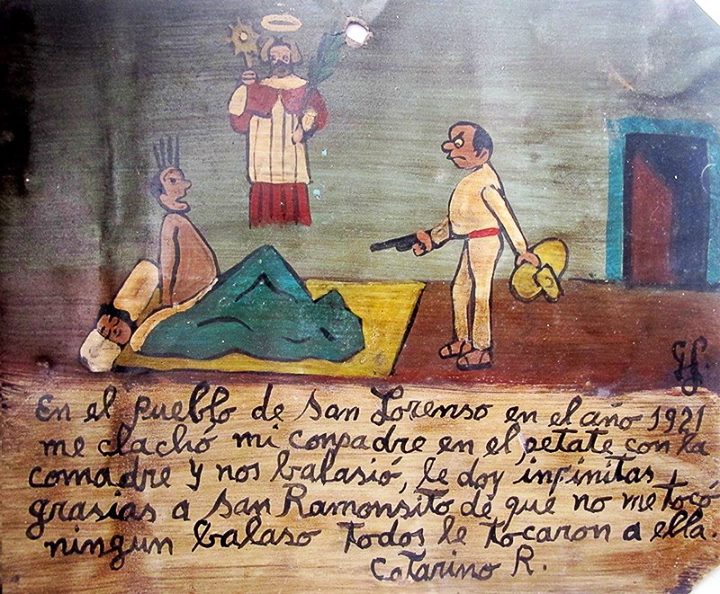 En el pueblo de San Lorenso en el año 1921
me clachó mi conpadre en el petate con la
comadre y nos balasió, le doy infinitas
grasias a San Ramonsito de qué no me tocó
ningun balaso todos le tocaron a ella.
Catarino R.